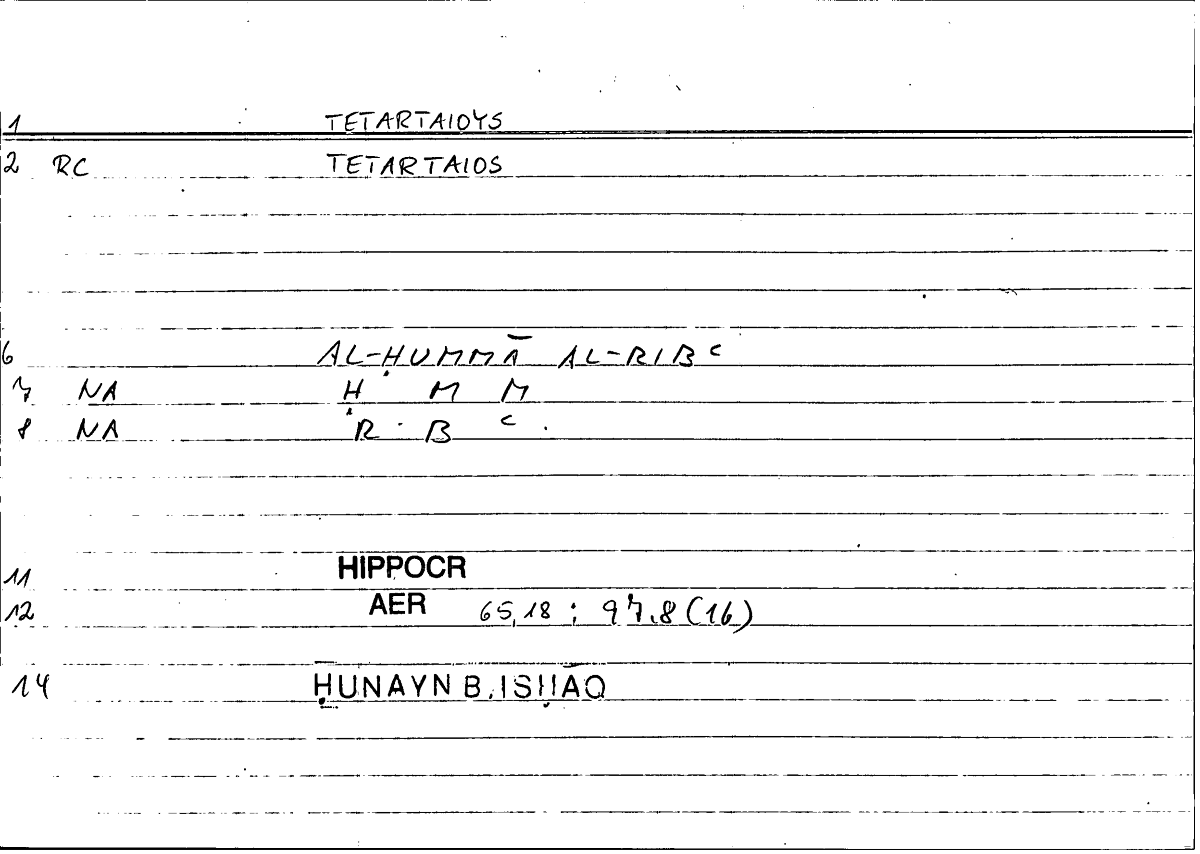 1 TETARTAIOYS
2 RC TETARTAIOS
6 AL-ḤUMMĀ AL-RIBʿ
7 NA Ḥ M M
8 NA R B ʿ
11 HIPPOCR
12 AER 65,18 ; 97,8 (16)
14 ḤUNAYN B. ISḤĀQ